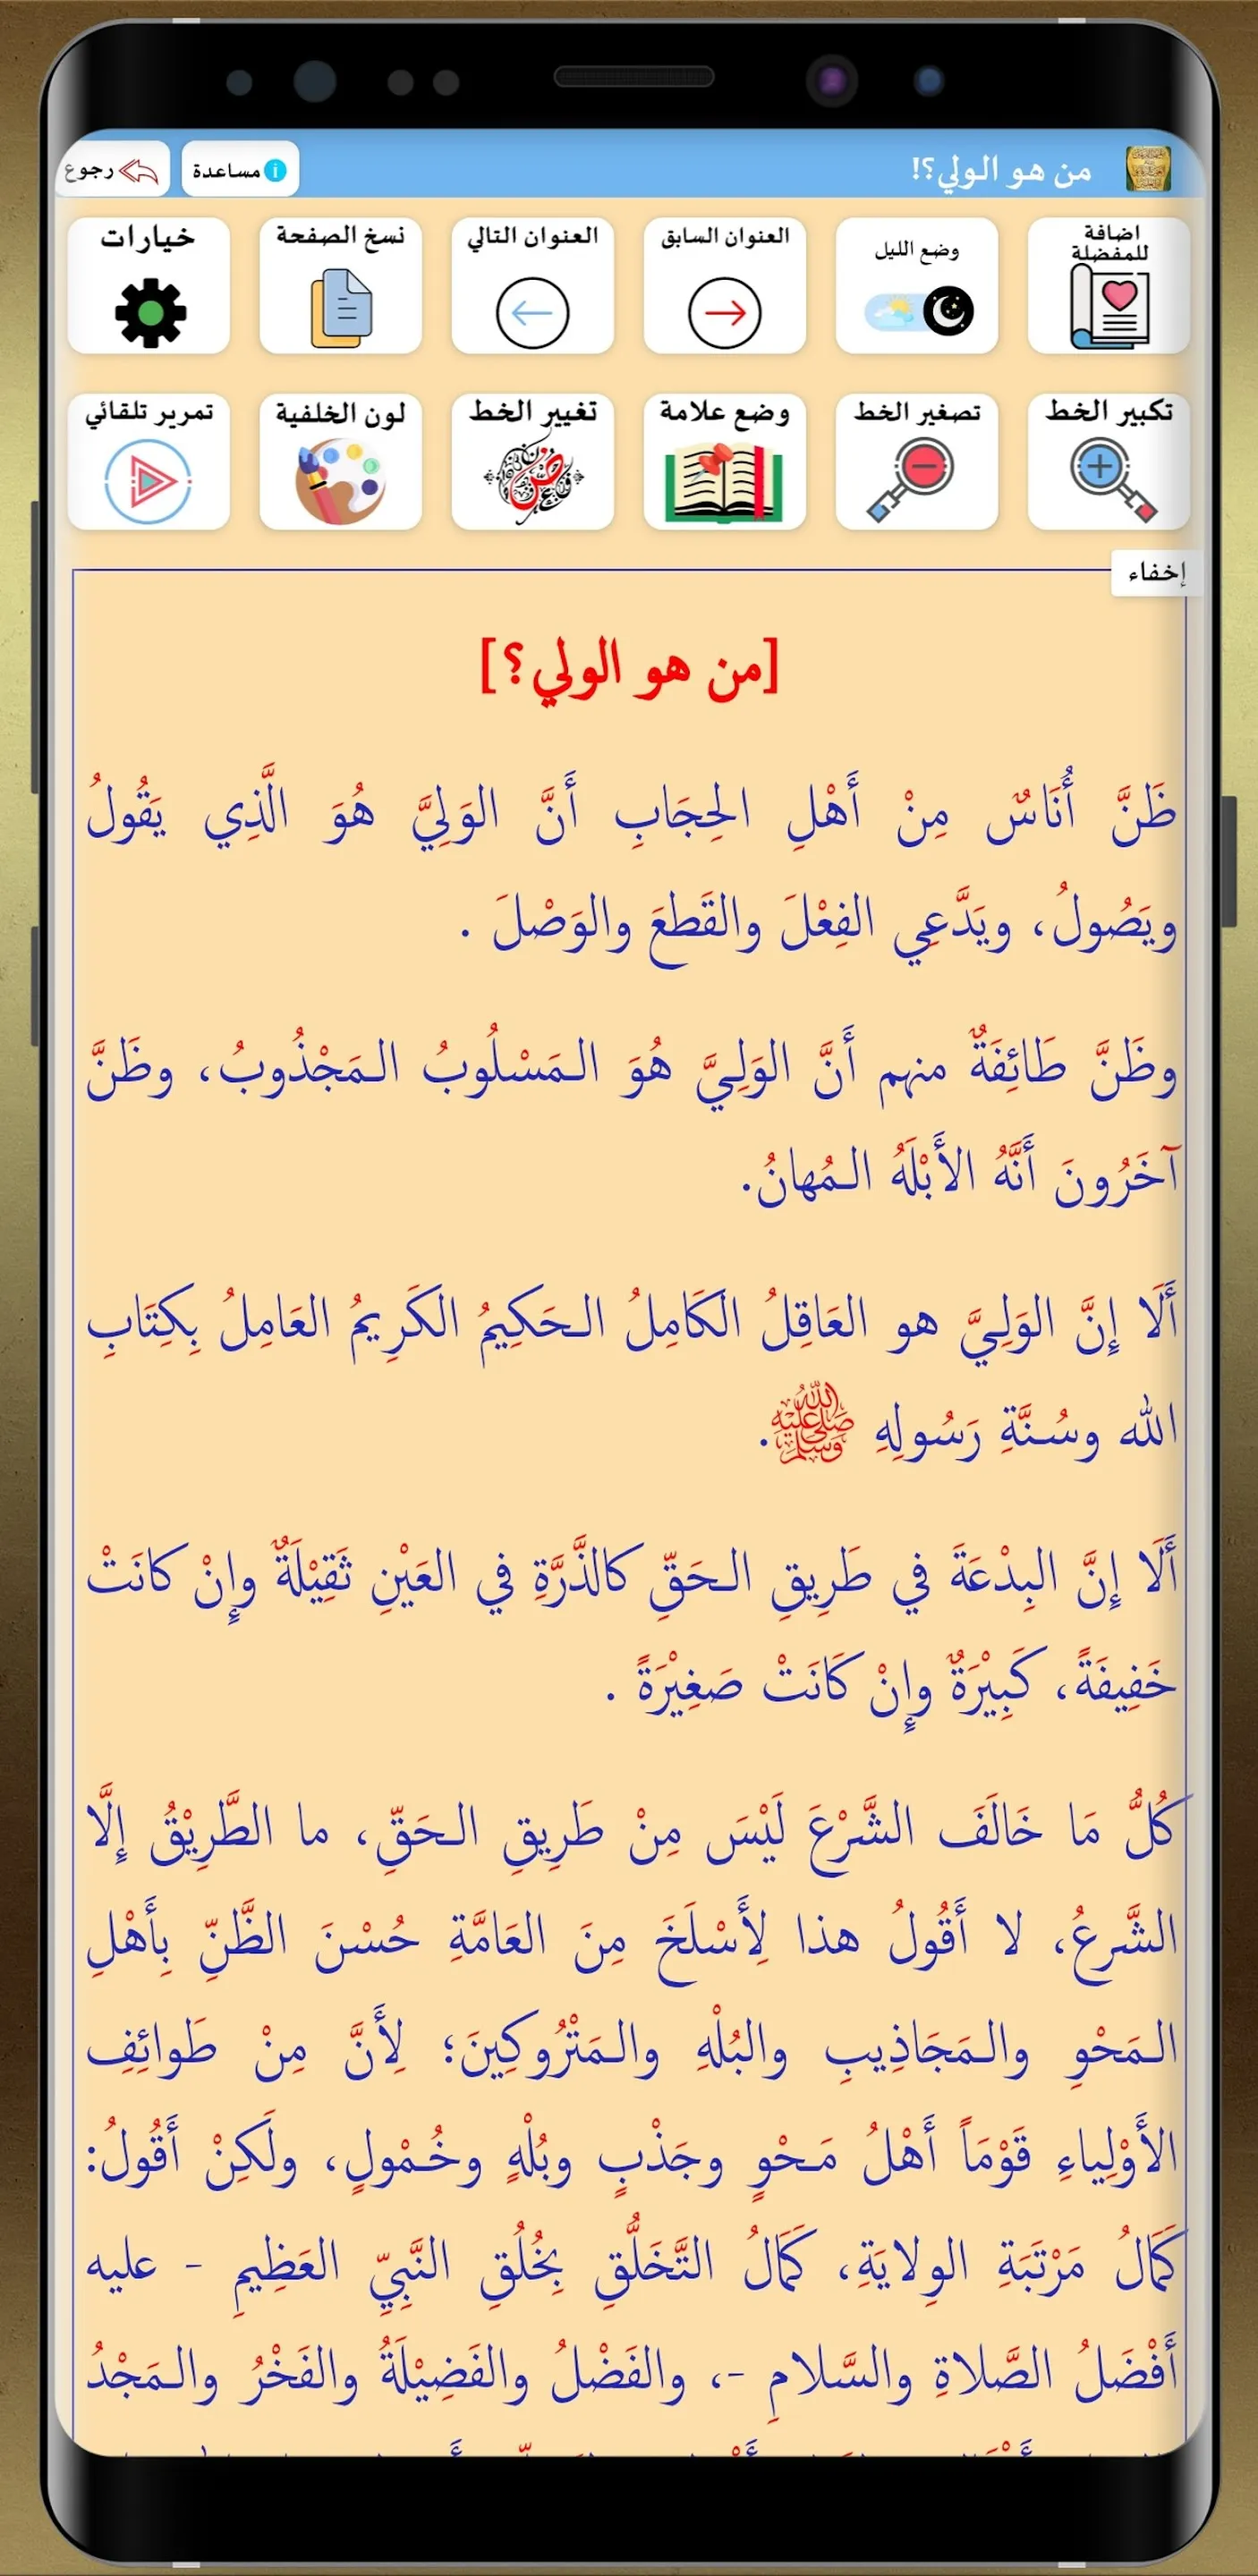 من هو الولي؟!
مساعدة
رجوع
اضافة
للمفضلة
وضع الليل
العنوان السابق
العنوان التالي
نسخ الصفحة
خيارات
تكبير الخط
تصغير الخط
وضع علامة
تغيير الخط
لون الخلفية
تمرير تلقائي
إخفاء
[من هو الولي؟]
ظَنَّ أُنَاسٌ مِنْ أَهْلِ الحِجَابِ أَنَّ الوَلِيَّ هُوَ الَّذِي يَقُولُ
ويَصُولُ، ويَدَّعِي الفِعْلَ والقَطعَ والوَصْلَ .
وظَنَّ طَائِفَةٌ منهم أَنَّ الوَلِيَّ هُوَ المَسْلُوبُ المَجْذُوبُ، وظَنَّ
آخَرُونَ أَنَّهُ الأَبْلَهُ المُهانُ.
أَلَا إِنَّ الوَلِيَّ هو العَاقِلُ الكَامِلُ الحَكِيمُ الكَرِيمُ العَامِلُ بِكِتَابِ
الله وسُنَّةِ رَسُولِهِ ﷺ.
أَلَا إِنَّ البِدْعَةَ في طَرِيقِ الحَقِّ كالذَّرَّةِ في العَيْنِ ثَقِيْلَةٌ وإِنْ كانَتْ
خَفِيفَةً، كَبِيْرَةٌ وإِنْ كَانَتْ صَغِيْرَةً .
كُلُّ مَا خَالَفَ الشَّرْعَ لَيْسَ مِنْ طَرِيقِ الحَقِّ، ما الطَّرِيْقُ إِلَّا
الشَّرعُ، لا أَقُولُ هذا لِأَسْلَخَ مِنَ العَامَّةِ حُسْنَ الظَّنِّ بِأَهْلِ
المَحْوِ والمَجَاذِيبِ والبُلْهِ والمَتْرُوكِينَ؛ لِأَنَّ مِنْ طَوائِفِ
الأَوْلِياءِ قَوْمَاً أَهْلُ مَحْوٍ وجَذْبٍ وبُلْهٍ وخُمْولٍ، ولَكِنْ أَقُولُ:
كَمَالُ مَرْتَبَةِ الوِلايَةِ، كَمَالُ التَّخَلُّقِ بِخُلُقِ النَّبِيِّ العَظِيمِ - عليه
أَفْضَلُ الصَّلاةِ والسَّلامِ -، والفَضْلُ والفَضِيْلَةُ والفَخْرُ والمَجْدُ